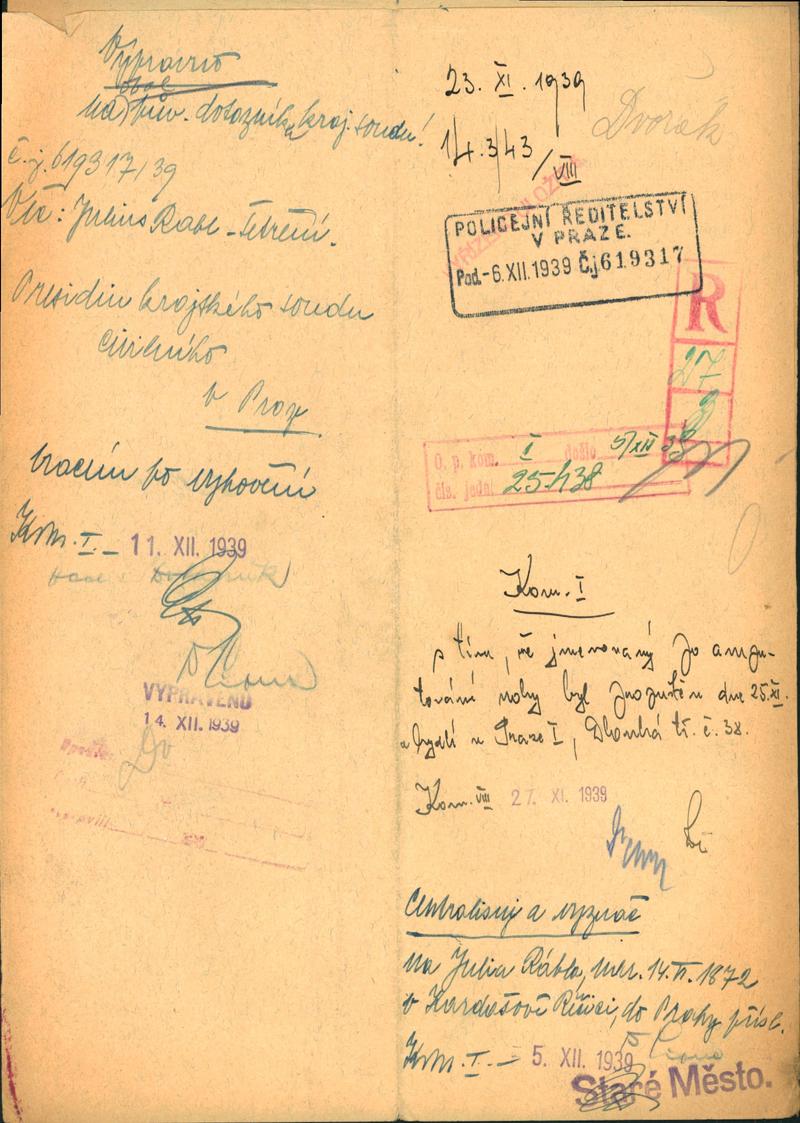 Vypraviti
obal
na pův. dotazník kraj. soudu!
č.j. 619317/39
Věc: Julius Rabl - šetření.
Presidiu krajského soudu
civilního
v Praze
vracím po vyhovění
Kom. I. - 11. XII. 1939
VYPRAVENO
14. XII. 1939
23. XI. 1939
Dvořák
14.343/VIII
POLICEJNÍ ŘEDITELSTVÍ
V PRAZE.
Pod. -6. XII. 1939 Čj 619317
R
27
O. p. kom. I došlo 5/XII 39
čís. jedn. 25438
Kom. I
s tím, že jmenovaný po ampu-
tování nohy byl propuštěn dne 25.XI.
a bydlí v Praze I, Dlouhá tř. č. 38.
Kom. VIII 27. XI. 1939
Centralisuj a vyznač
na Julia Rábla, nar. 14. 1872
v Kardašově Řečici, do Prahy přísl.
Kom. I. - 5. XII. 1939
Staré Město.